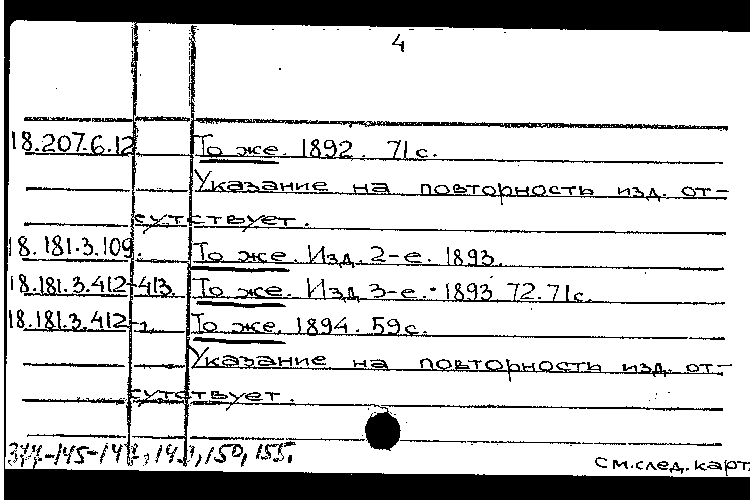 4
18.207.6.12 То же. 1892. 71 с.
Указание на повторность изд. от-
сутствует.
18.181.3.109. То же. Изд. 2-е. 1893.
18.181.3.412-413 То же. Изд 3-е. 1893 72.71с.
18.181.3.412- То же. 1894. 59 с.
Указание на повторность изд. от-
сутствует.
150, 155.
См.след.карт.